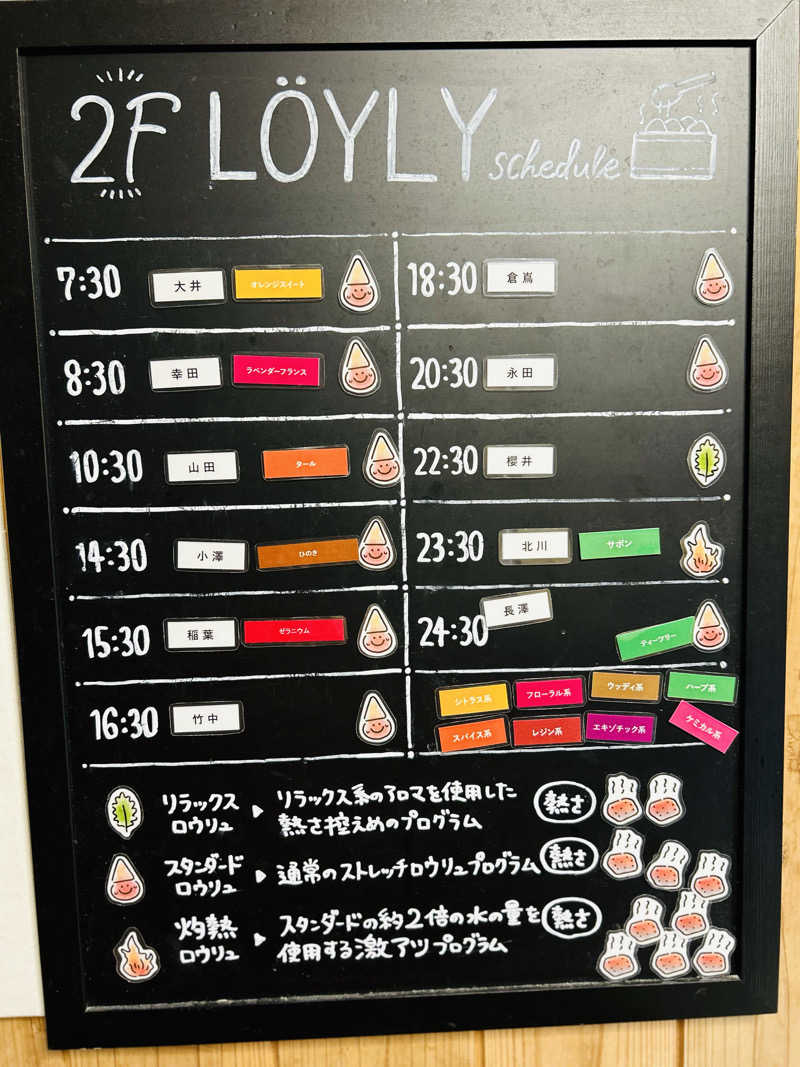 2F LÖYLY schedule
7:30 大井 オレンジスイート
8:30 幸田 ラベンダーフランス
10:30 山田 タール
14:30 小澤 ひのき
15:30 稲葉 ゼラニウム
16:30 竹中
18:30 倉嶌
20:30 永田
22:30 櫻井
23:30 北川 サボン
24:30 長澤 ティーツリー
シトラス系 フローラル系 ウッディ系 ハーブ系
スパイス系 レジン系 エキゾチック系 ケミカル系
リラックス
ロウリュ
リラックス系のアロマを使用した
熱さ控えめのプログラム
熱さ
スタンダード
ロウリュ
通常のストレッチロウリュプログラム
熱さ
灼熱
ロウリュ
スタンダードの約2倍の水の量を
使用する激アツプログラム
熱さ